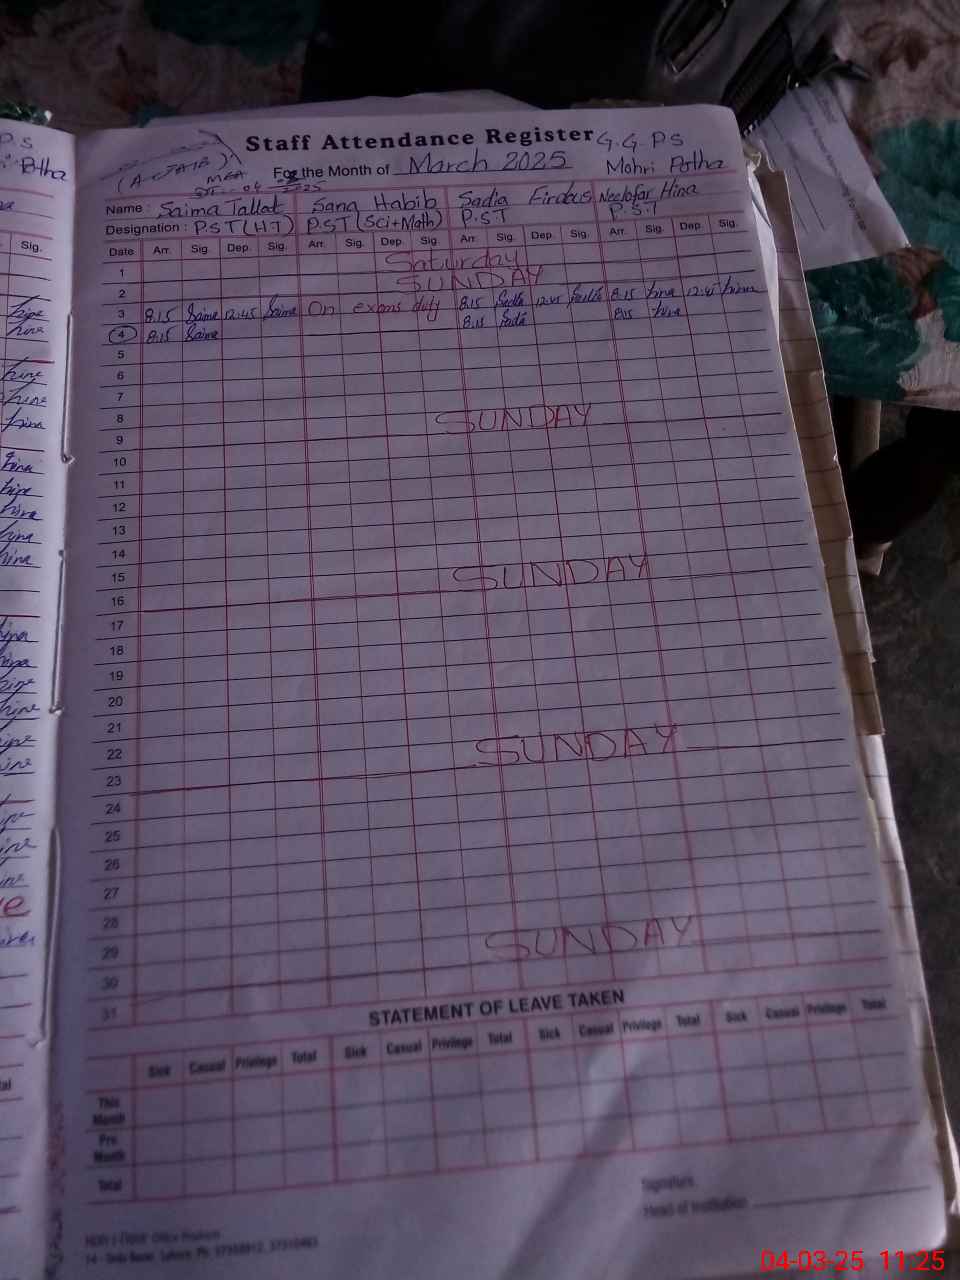 Staff Attendance Register G.G.P.S
For the Month of March 2025 Mohri Potha
MEA
Name : Saima Tallat Sana Habib Sadia Firdous Neelofar Hina
Designation : P.S.T (H.T) P.S.T (Sci+Math) P.S.T P.S.T
Date Arr. Sig. Dep. Sig. Arr. Sig. Dep. Sig. Arr. Sig. Dep. Sig. Arr. Sig. Dep. Sig.
1 Saturday
2 SUNDAY
3 8.15 Saima 12:45 Saima On duty 8.15 Sadia 12:45 Sadia 8.15 hina 12:45 hina
4 8:15 Saima 8.15 Sadia 8:15 hina
5
6
7
8
9 SUNDAY
10
11
12
13
14
15
16 SUNDAY
17
18
19
20
21
22
23 SUNDAY
24
25
26
27
28
29
30 SUNDAY
31
STATEMENT OF LEAVE TAKEN
Sick Casual Privilege Total Sick Casual Privilege Total Sick Casual Privilege Total Sick Casual Privilege Total
This Month
Pre Month
Total
Signature
Head of Institution
04-03-25 11:25
P.S
Potha
Sig.
hina
hina
hina
hina
hina
hina
hina
hina
hina
hina